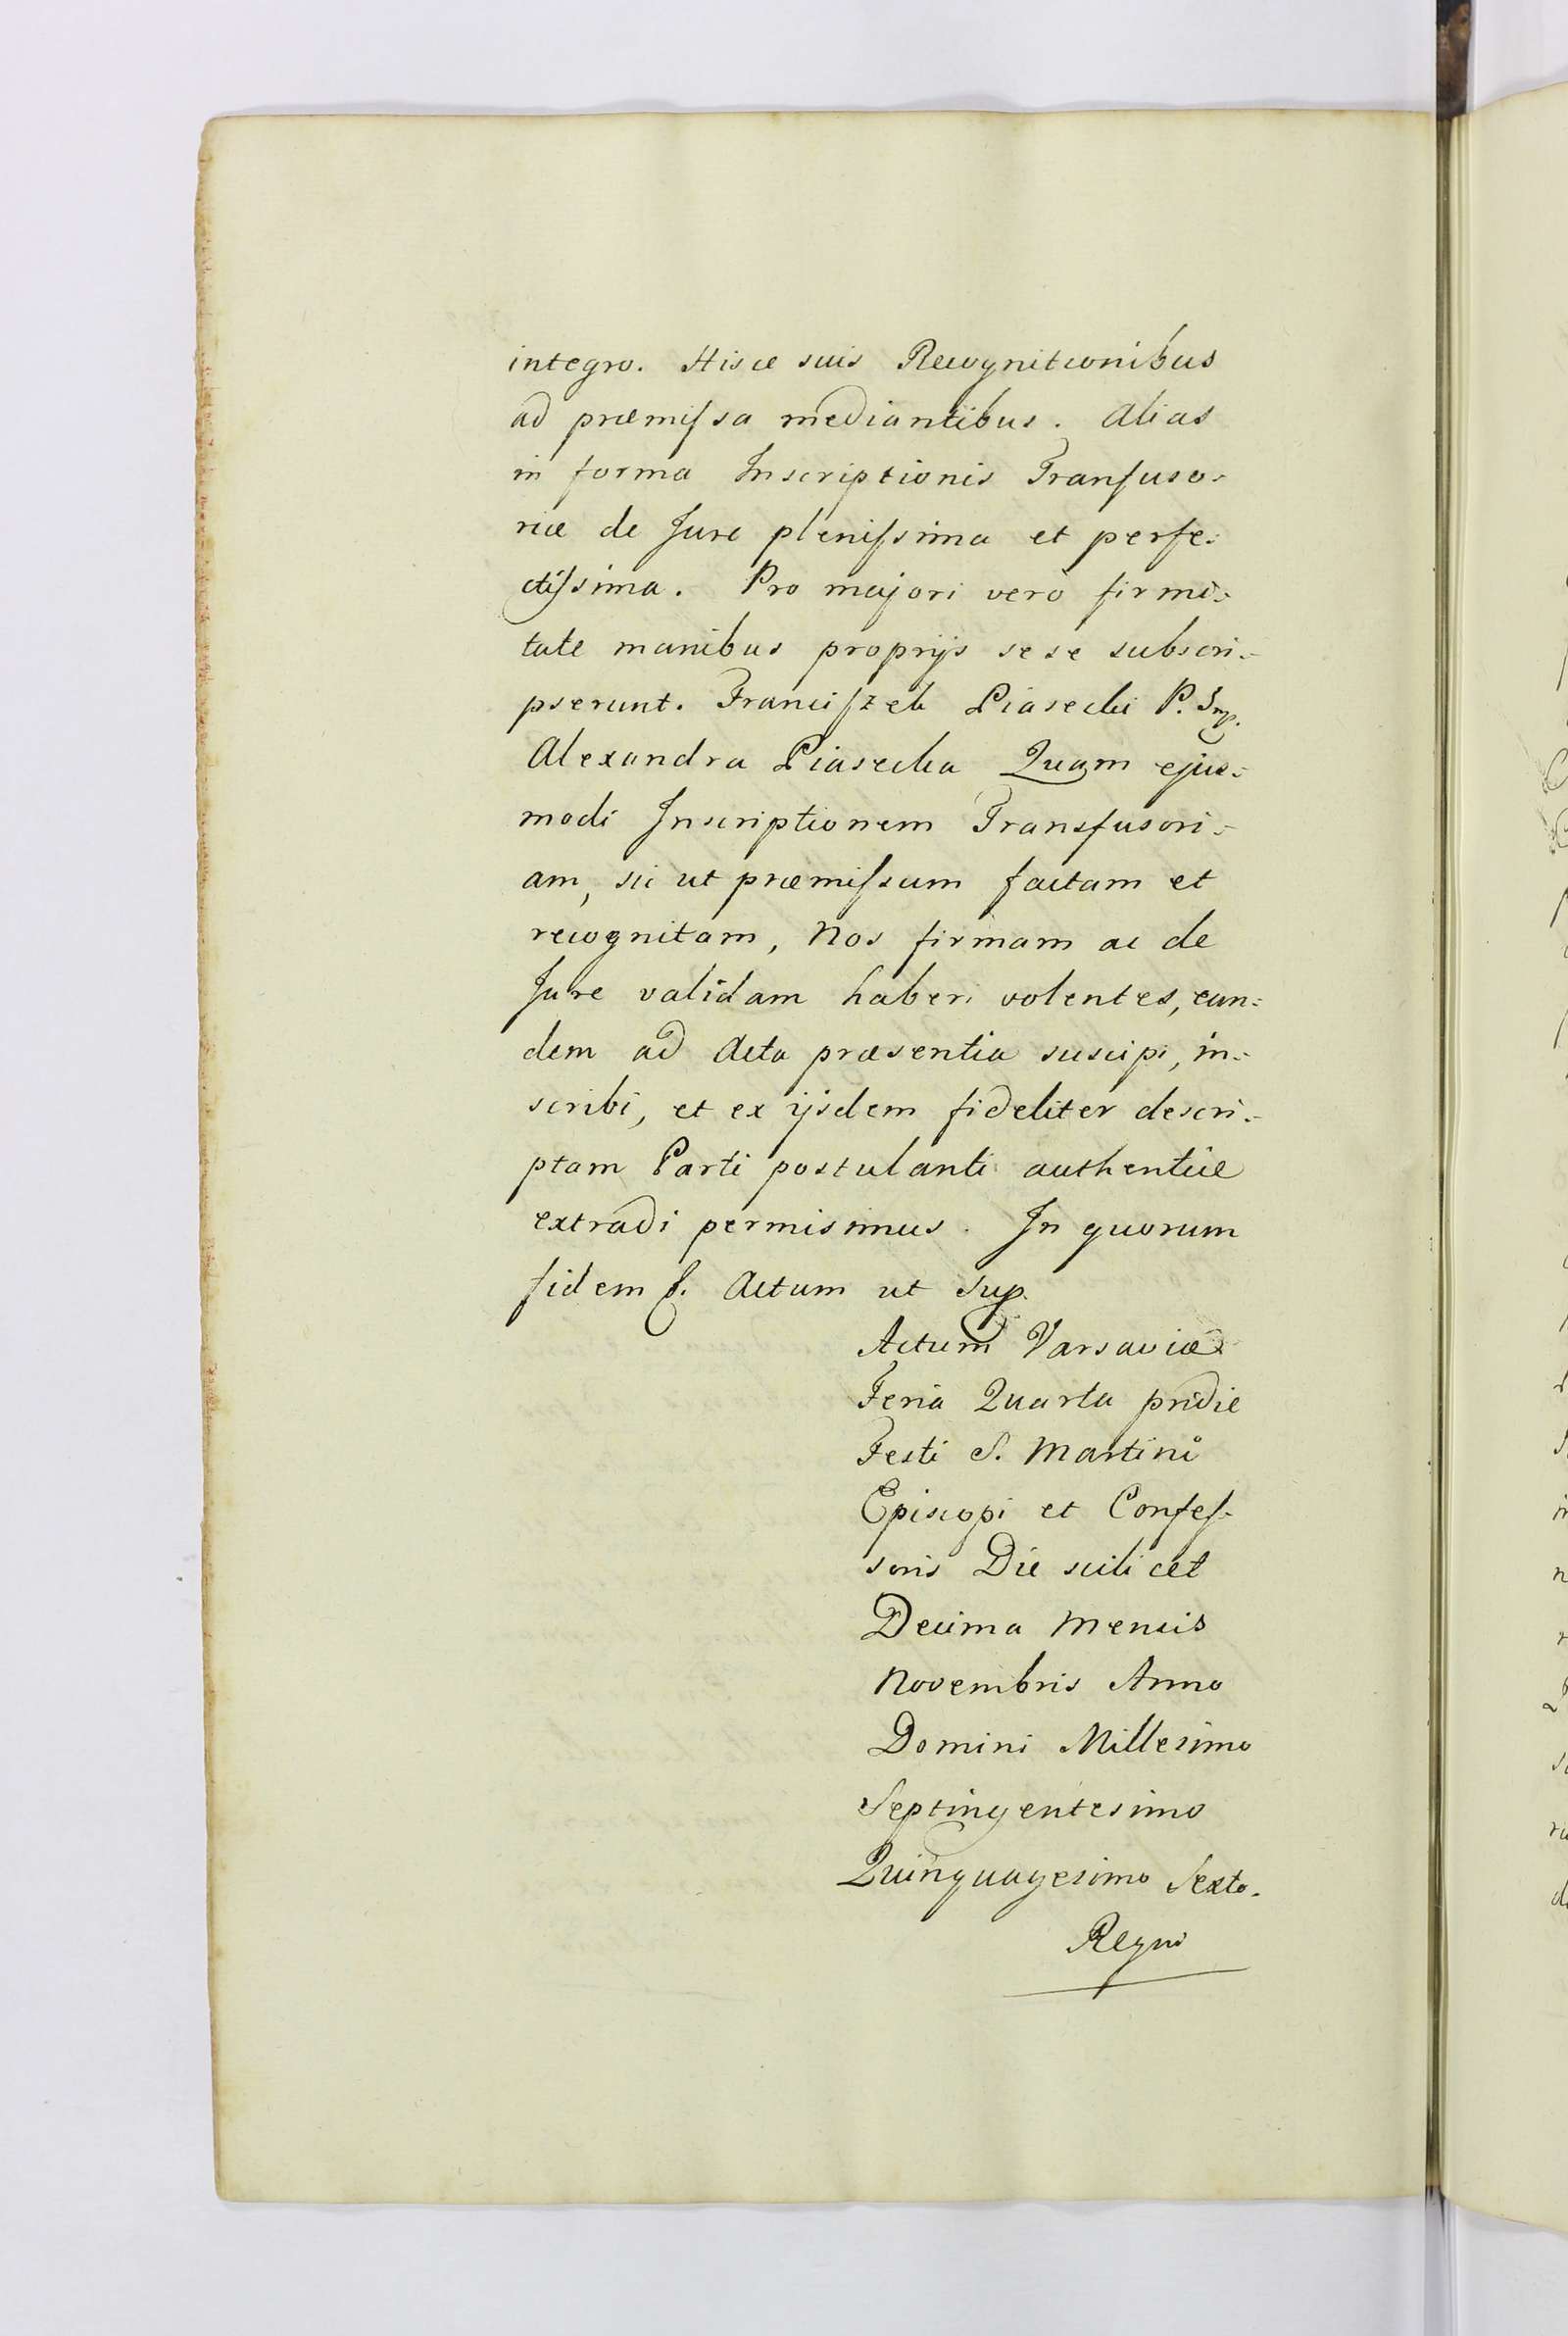 integro. Hisce suis Recognitionibus
ad præmiſsa mediantibus. Alias
in forma Inscriptionis Tranfuso-
riæ de Jure pleniſsima et perfe-
ctiſsima. Pro majori verò firmi-
tate manibus proprijs sese subscri-
pserunt. Franciſzek Piasecki P. Smp.
Alexandra Piasecka Quam ejus-
modi Inscriptionem Transfusori-
am, sic ut præmiſsum factam et
recognitam, Nos firmam ac de
Jure validam haberi volentes, ean-
dem ad Acta præsentia suscipi, in-
scribi, et ex ijsdem fideliter descri-
ptam Parti postulanti authenticè
extradi permisimus. In quorum
fidem f. Actum ut sup.
Actum Varsaviæ
Feria Quarta pridie
Festi S. Martini
Episcopi et Confeſ-
soris Die scilicet
Decima Mensis
Novembris Anno
Domini Millesimo
Septingentesimo
Quinquagesimo Sexto.
Regni